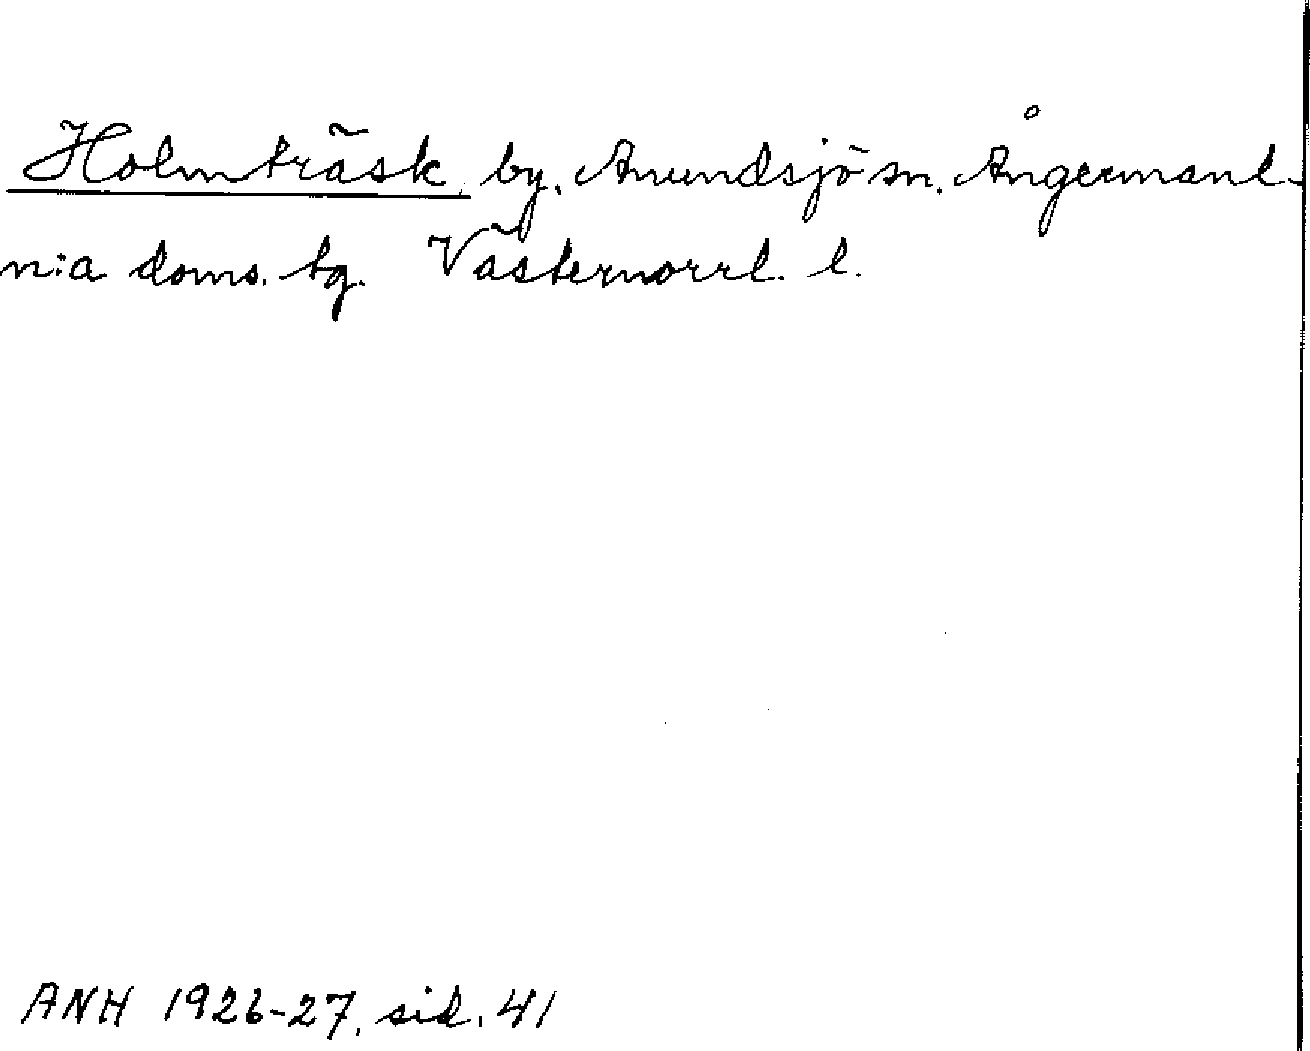 Holmträsk, by, Anundsjö sn. Ångermanl.
n:a doms. tg. Västernorrl. l.
ANH 1926-27, sid. 41